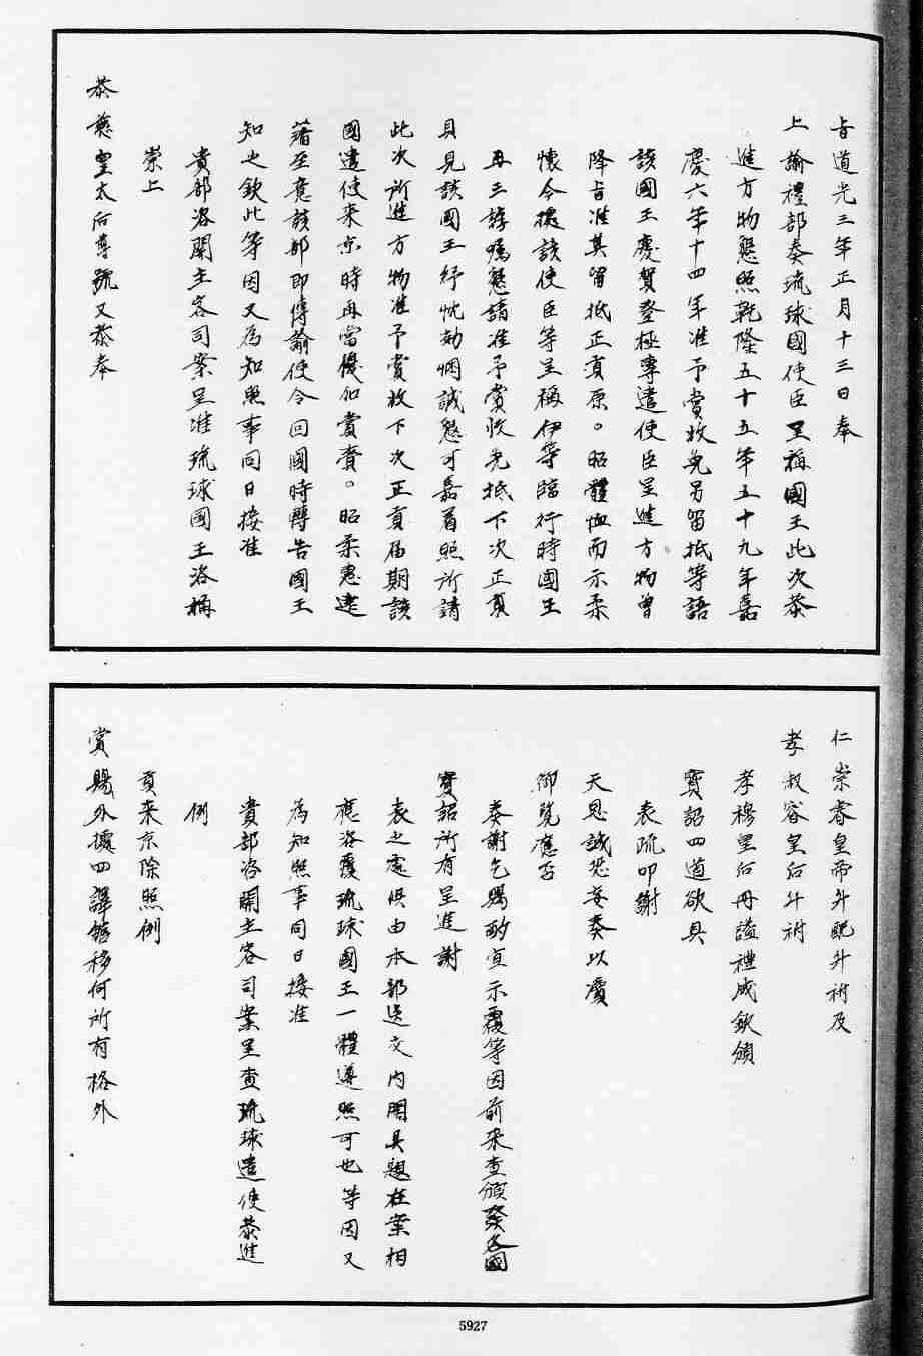 旨道光三年正月十三日奉
上諭禮部奏琉球國使臣呈稱國王此次恭
進方物懇照乾隆五十五年五十九年嘉
慶六年十四年准予賞收免另留抵等語
該國王慶賀登極專遣使臣呈進方物曾
降旨准其留抵正貢原。昭體恤而示柔
懷今據該使臣等呈稱伊等臨行時國王
再三諄囑懇請准予賞收免抵下次正貢
具見該國王紓忱効悃誠懇可嘉着照所請
此次所進方物准予賞收下次正貢屆期該
國遣使來京時再當優加賞賚。昭柔惠遠
藩至意該部即傳諭使令回國時轉告國王
知之欽此等因又為知照事同日接准
貴部咨開主客司案呈准琉球國王咨稱
崇上
恭慈皇太后尊號又恭奉
仁宗睿皇帝升配升祔及
孝叔容皇后升祔
孝穆皇后冊謚禮成欽頒
寶詔四道欲具
表疏叩謝
天恩誠恐妄奏以瀆
御覽應否
奏謝乞賜酌宣示覆等因前來查頒發各國
寶詔所有呈進謝
表之處俱由本部送文内閣具題在案相
應咨覆琉球國王一體遵照可也等因又
為知照事同日接准
貴部咨開主客司案呈查琉球遣使恭進
例
貢来京除照例
賞賜外據四譯舘移何所有格外
5927